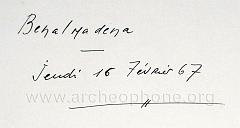 Benalmadena
Jeudi 16 Février 67
www.archeophone.org